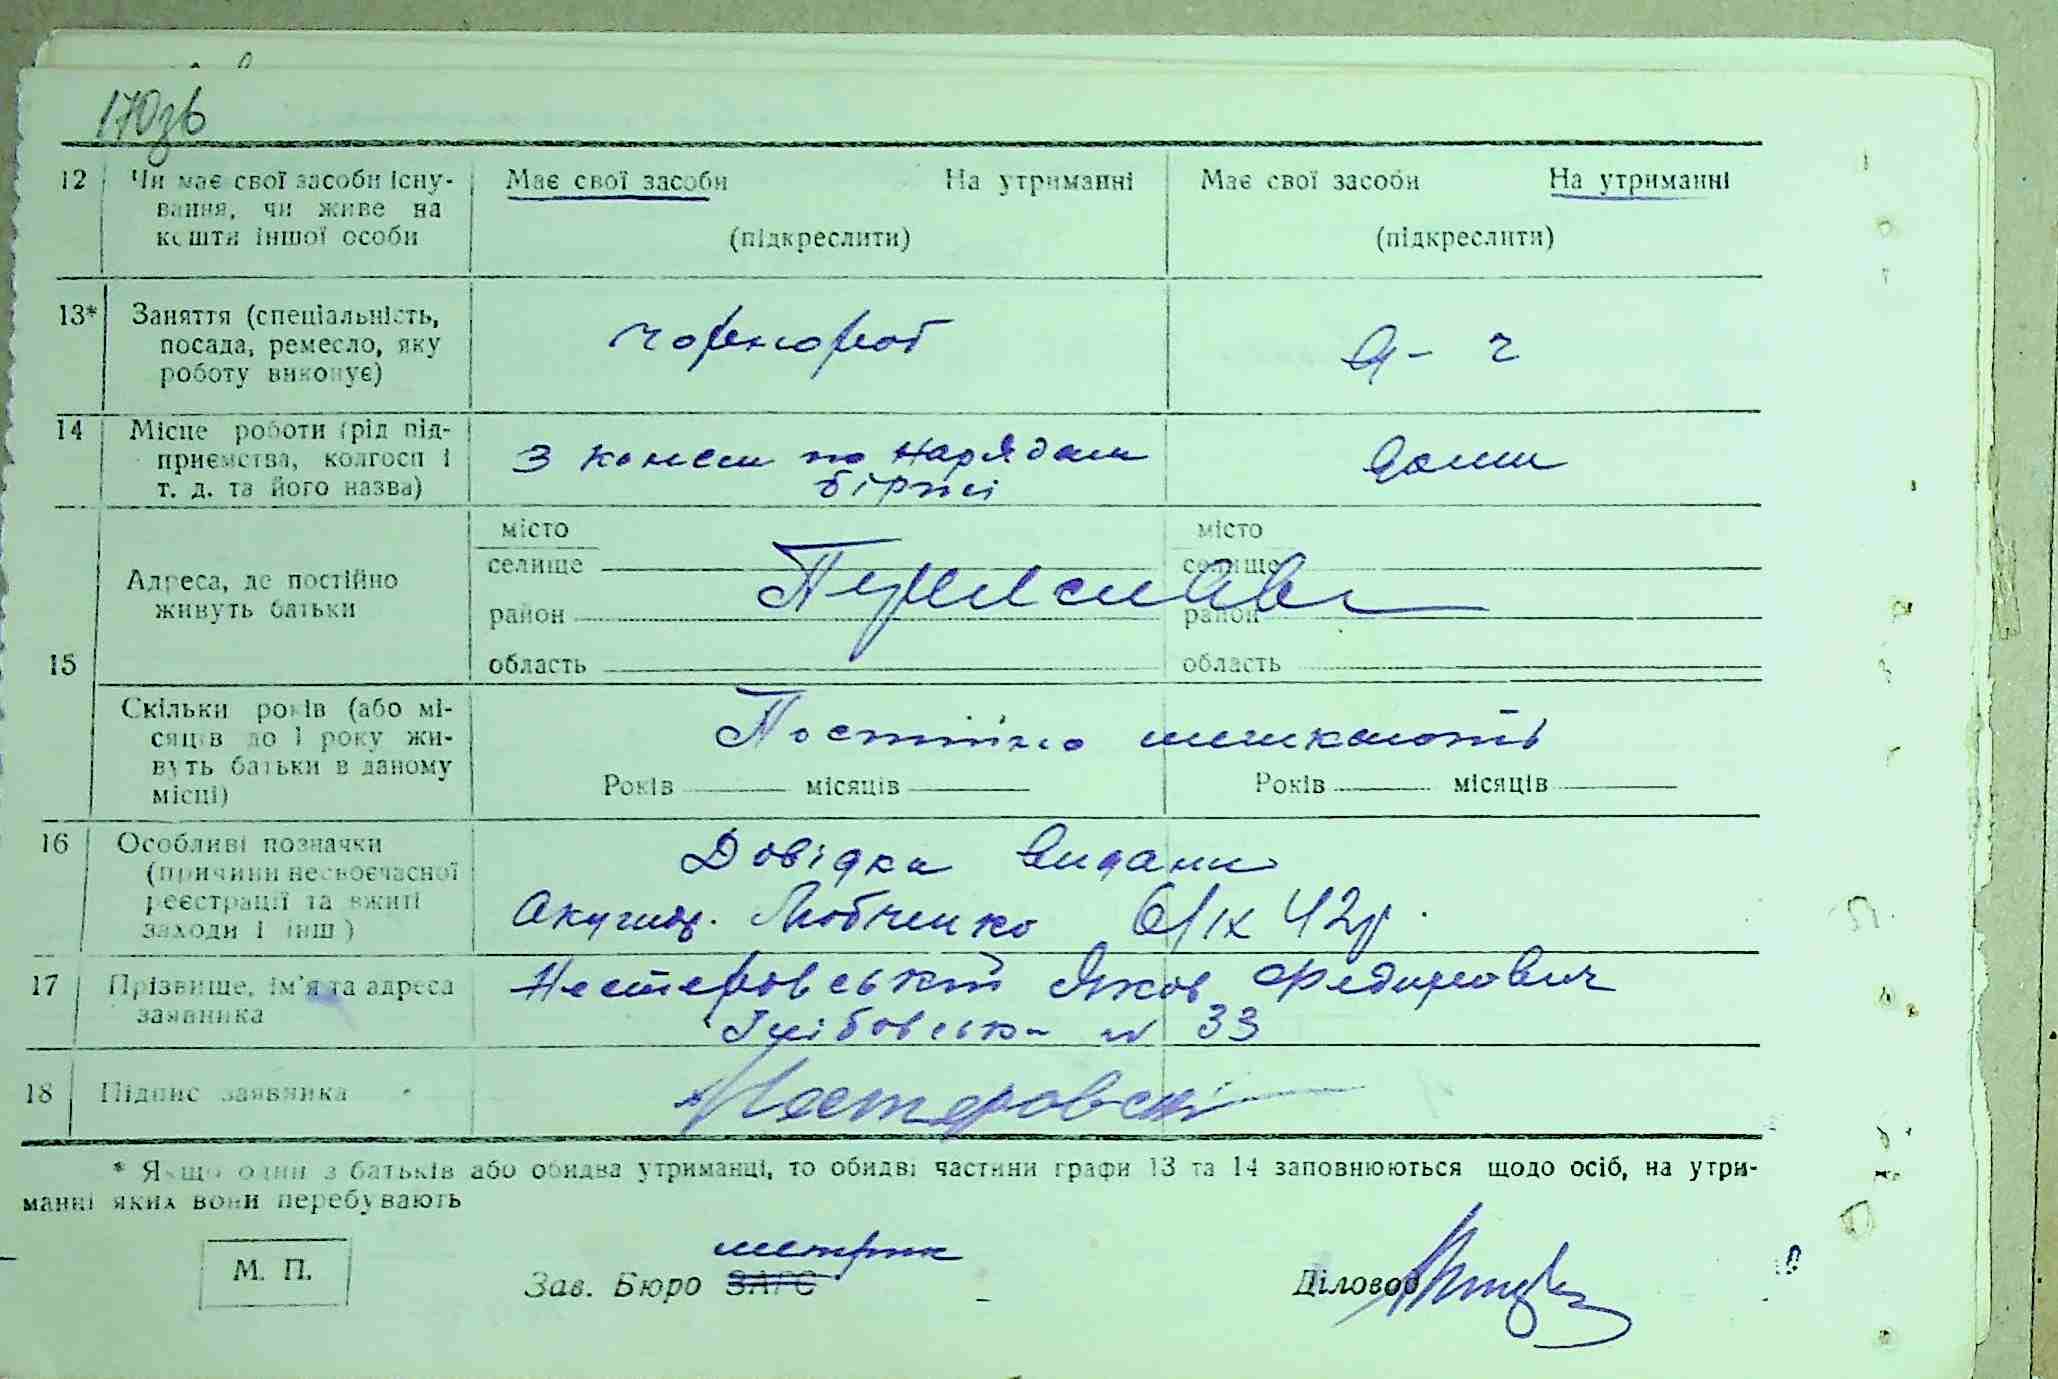 170зв
12 Чи має свої засоби існу- Має свої засоби На утриманні Має свої засоби На утриманні
вання, чи живе на
кошти іншої особи (підкреслити) (підкреслити)
13* Заняття (спеціальність,
посада, ремесло, яку чорнороб
роботу виконує)
14 Місце роботи (рід під-
приємства, колгосп і З конем по нарядам дома
т. д. та його назва) біржі
місто місто
селище селище
Адреса, де постійно Переяслав
живуть батьки район район
15 область область
Скільки років (або мі- Постійно мешкають
сяців до 1 року жи-
вуть батьки в даному Років місяців Років місяців
місці)
16 Особливі позначки Довідка видана
(причини несвоєчасної
реєстрації та вжиті Акушер. Любченко 6/ІХ 42р.
заходи і інш)
17 Прізвище, ім'я та адреса Нестеровський Яков Федорович
заявника № 33
18 Підпис заявника Нестеровскі
* Якщо один з батьків або обидва утриманці, то обидві частини графи 13 та 14 заповнюються щодо осіб, на утри-
манні яких вони перебувають
метрик
М. П. Зав. Бюро ЗАГС Діловод